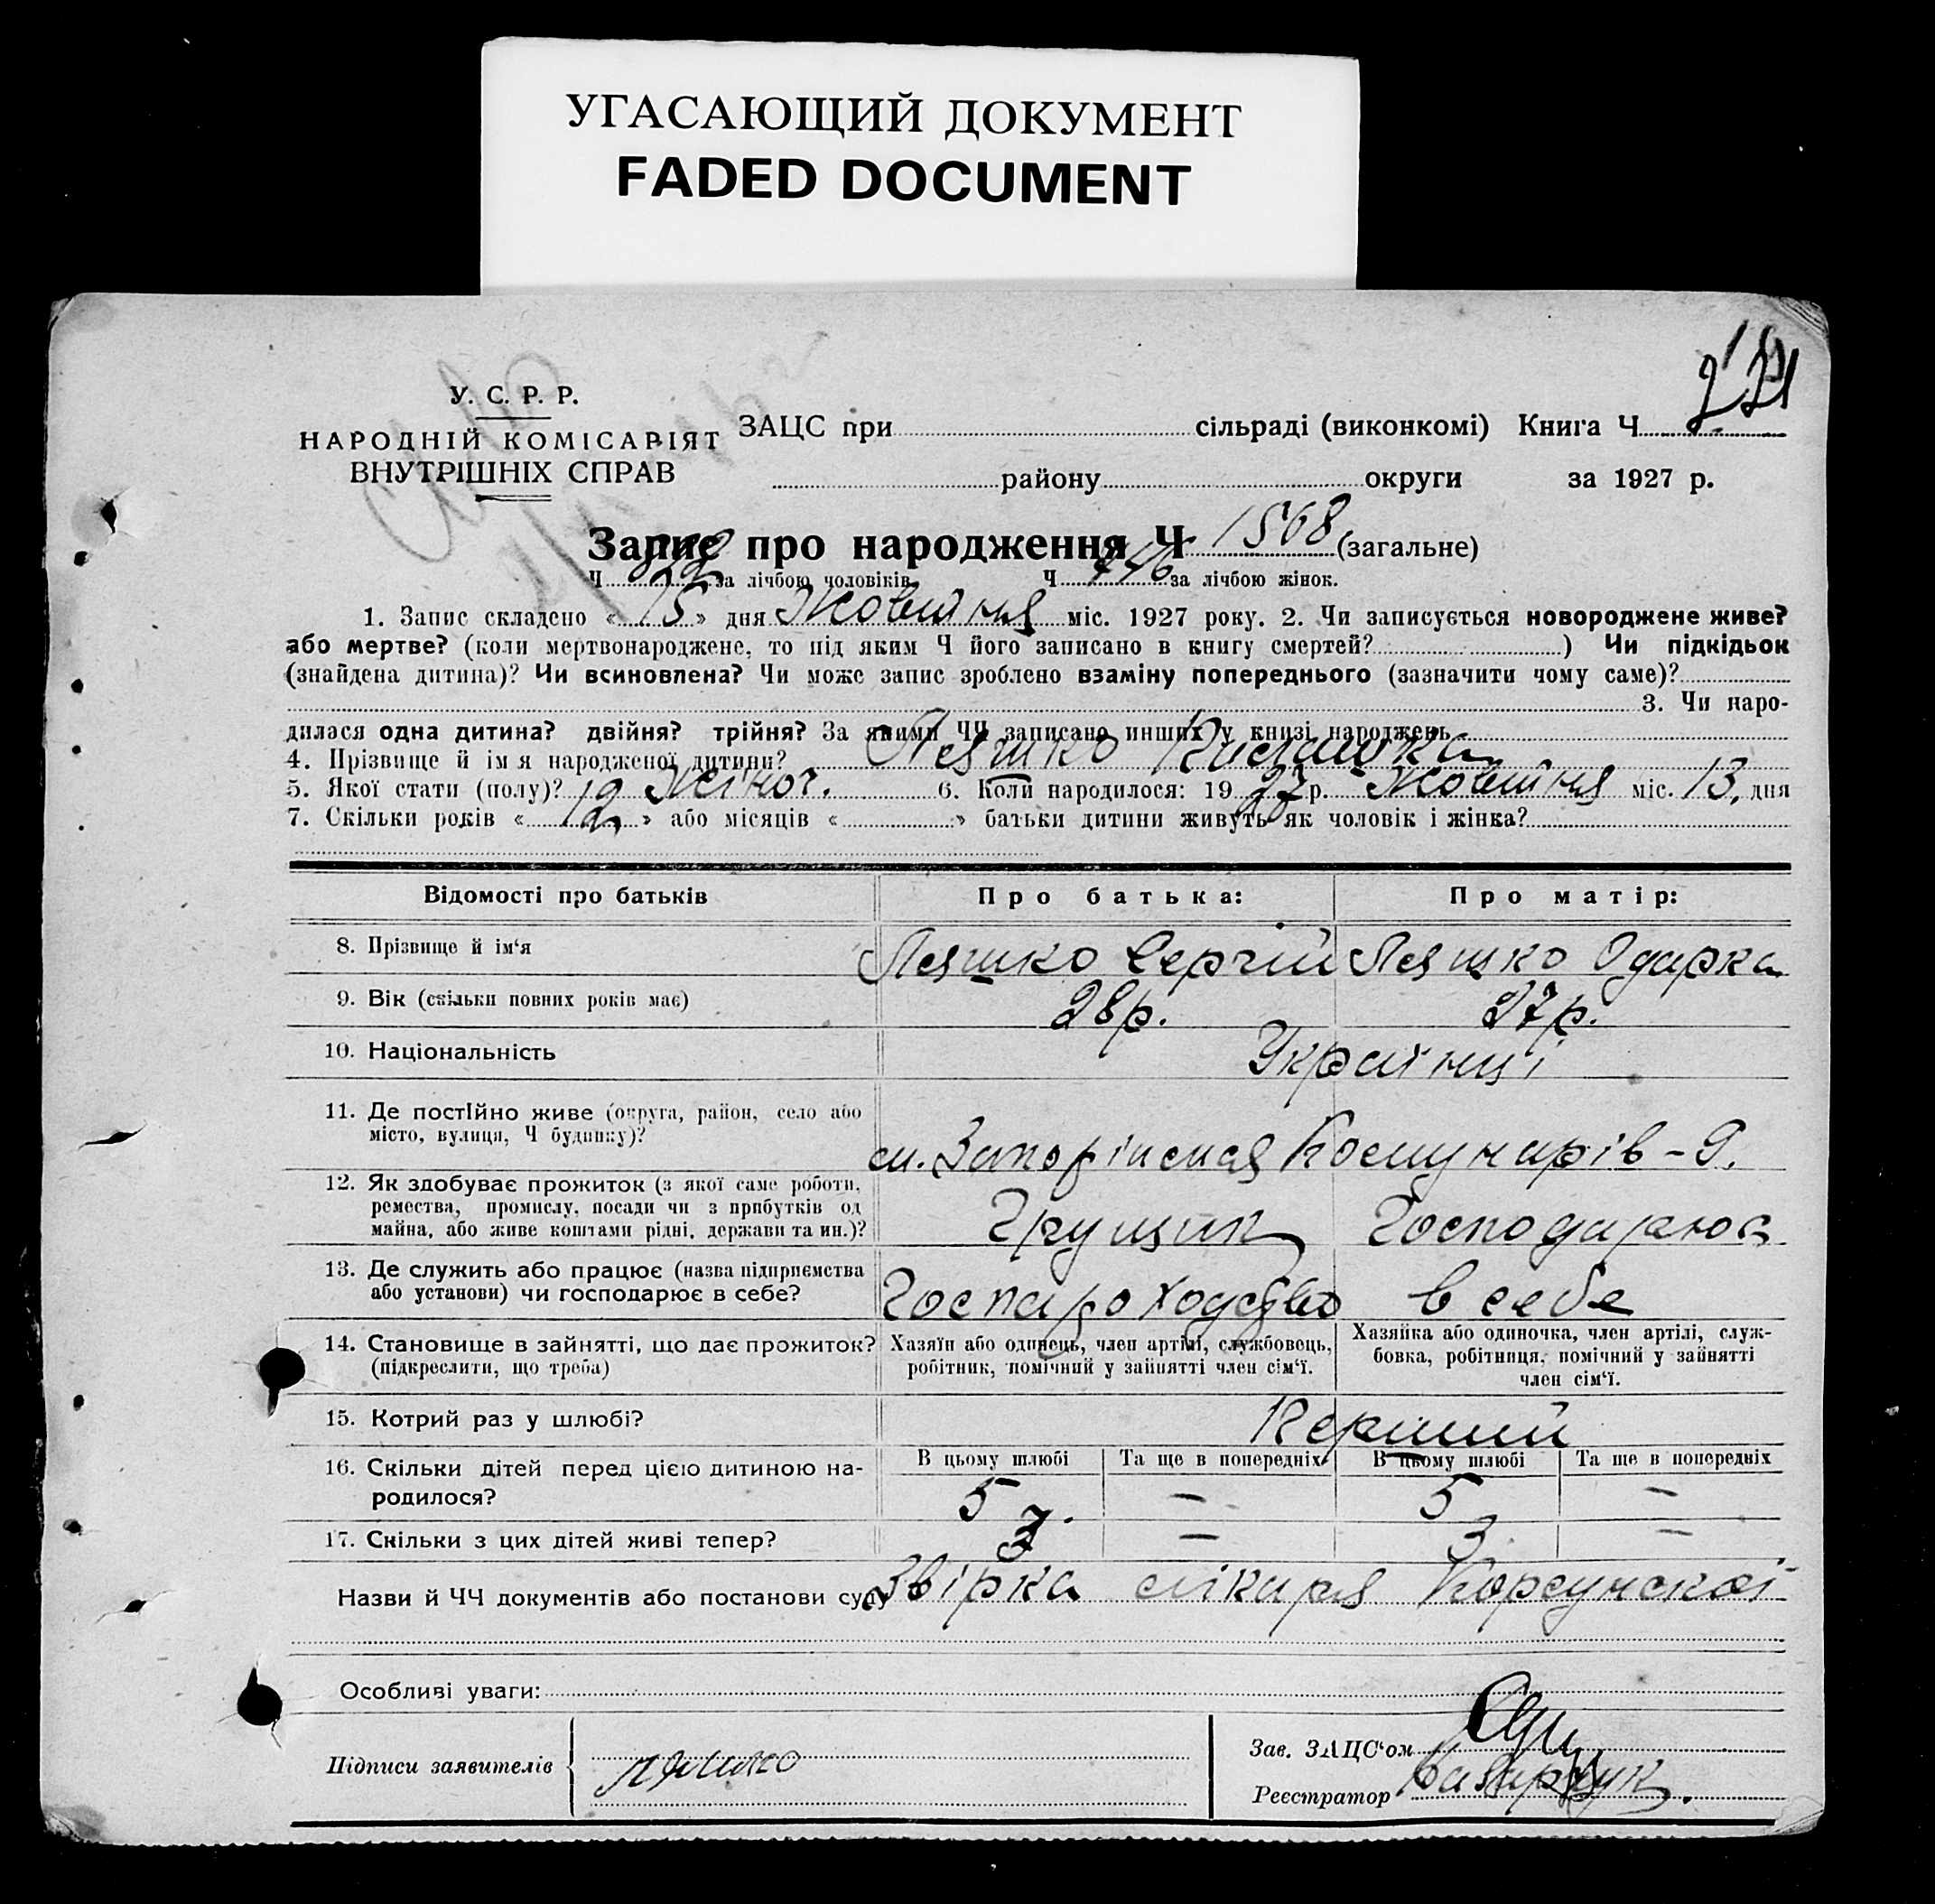 УГАСАЮЩИЙ ДОКУМЕНТ
FADED DOCUMENT
У. С. Р. Р.
НАРОДНІЙ КОМІСАРІЯТ
ВНУТРІШНІХ СПРАВ
ЗАЦС при сільраді (виконкомі) Книга Ч
району округи за 1927 р.
Запис про народження Ч 1568 (загальне)
Ч 822 за лічбою чоловіків Ч 746 за лічбою жінок.
1. Запис складено « 15 » дня Жовтня міс. 1927 року. 2. Чи записується новороджене живе?
або мертве? (коли мертвонароджене, то під яким Ч його записано в книгу смертей? ) Чи підкідьок
(знайдена дитина)? Чи всиновлена? Чи може запис зроблено взаміну попереднього (зазначити чому саме)?
3. Чи наро-
дилася одна дитина? двійня? трійня? За якими ЧЧ записано инших у книзі народжень
4. Прізвище й ім я народженої дитини? Ляшко
5. Якої стати (полу)? Жіноч. 6. Коли народилося: 19 27 р. Жовтня міс. 13, дня
7. Скільки років « 12 » або місяців « » батьки дитини живуть як чоловік і жінка?
Відомості про батьків Про батька: Про матір:
8. Прізвище й ім'я Ляшко Сергій Ляшко Одарка
9. Вік (скільки повних років має) 28 р. 27 р.
10. Національність Українці
11. Де постійно живе (округа, район, село або
місто, вулиця, Ч будинку)?
Комунарів - 9.
12. Як здобуває прожиток (з якої саме роботи,
ремества, промислу, посади чи з прибутків од
майна, або живе коштами рідні, держави та ин.)?
Грущик Господарює
13. Де служить або працює (назва підприємства
або установи) чи господарює в себе?
Госпароходство в себе
14. Становище в зайнятті, що дає прожиток?
(підкреслити, що треба)
Хазяїн або одинець, член артілі, службовець,
робітник, помічний у зайнятті член сім'ї.
Хазяйка або одиночка, член артілі, служ-
бовка, робітниця, помічний у зайнятті
член сім'ї.
15. Котрий раз у шлюбі? Перший
16. Скільки дітей перед цією дитиною на-
родилося?
В цьому шлюбі Та ще в попередніх В цьому шлюбі Та ще в попередніх
5 — 5 —
17. Скільки з цих дітей живі тепер? 3 — 3 —
Назви й ЧЧ документів або постанови суду Звірка лікаря Корсунської
Особливі уваги:
Підписи заявителів Ляшко
Зав. ЗАЦС'ом
Реєстратор